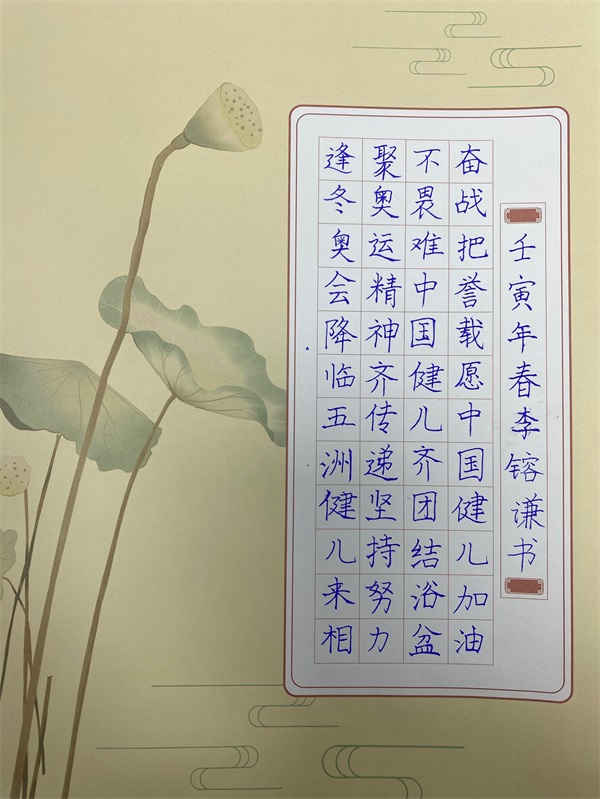 逢冬奥会降临五洲健儿来相
聚奥运精神齐传递坚持努力
不畏难中国健儿齐团结浴盆
奋战把誉载愿中国健儿加油
壬寅年春李镕谦书